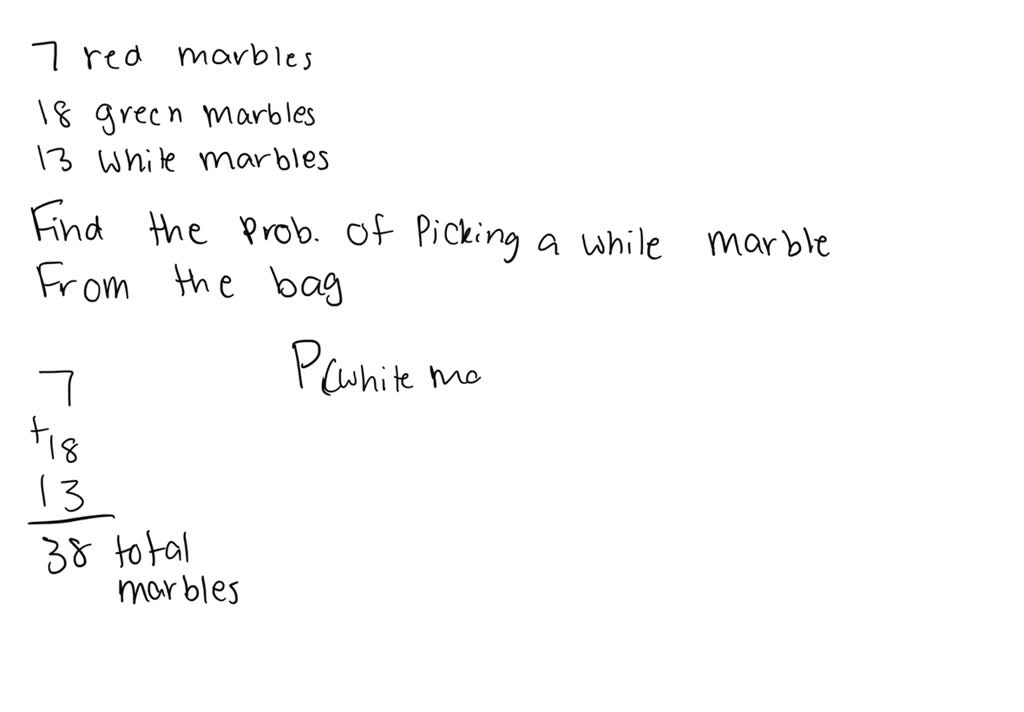 7 red marbles
18 green marbles
13 white marbles
Find the prob. of Picking a while marble
From the bag
7
+18
13
38 total
marbles
P(white ma